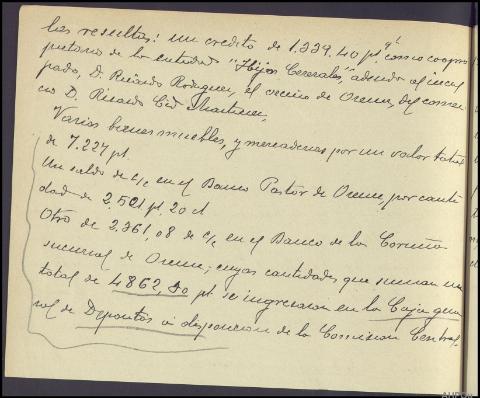 les resultas: un credito de 1.339.40 pt. qe como coopro
pietario de la entidad "Hijos Cesereles," adeuda al incul
pado, D. Ricardo Rodriguez, el vecino de Orense, del comer
cio D. Ricardo Cid Martinez,
Varios bienes muebles, y mercaderias por un valor total
de 7.227 pt.
Un saldo de c/c en el Banco Pastor de Orense, por canti
dad de 2.501 pt. 20 ct
Otro de 2.361,08 de c/c en el Banco de la Coruña
sucursal de Orense; cuyas cantidades que suman un
total de 4862,20 pt se ingresaron en la Caja gene
ral de Depositos a disposicion de la Comision Central.